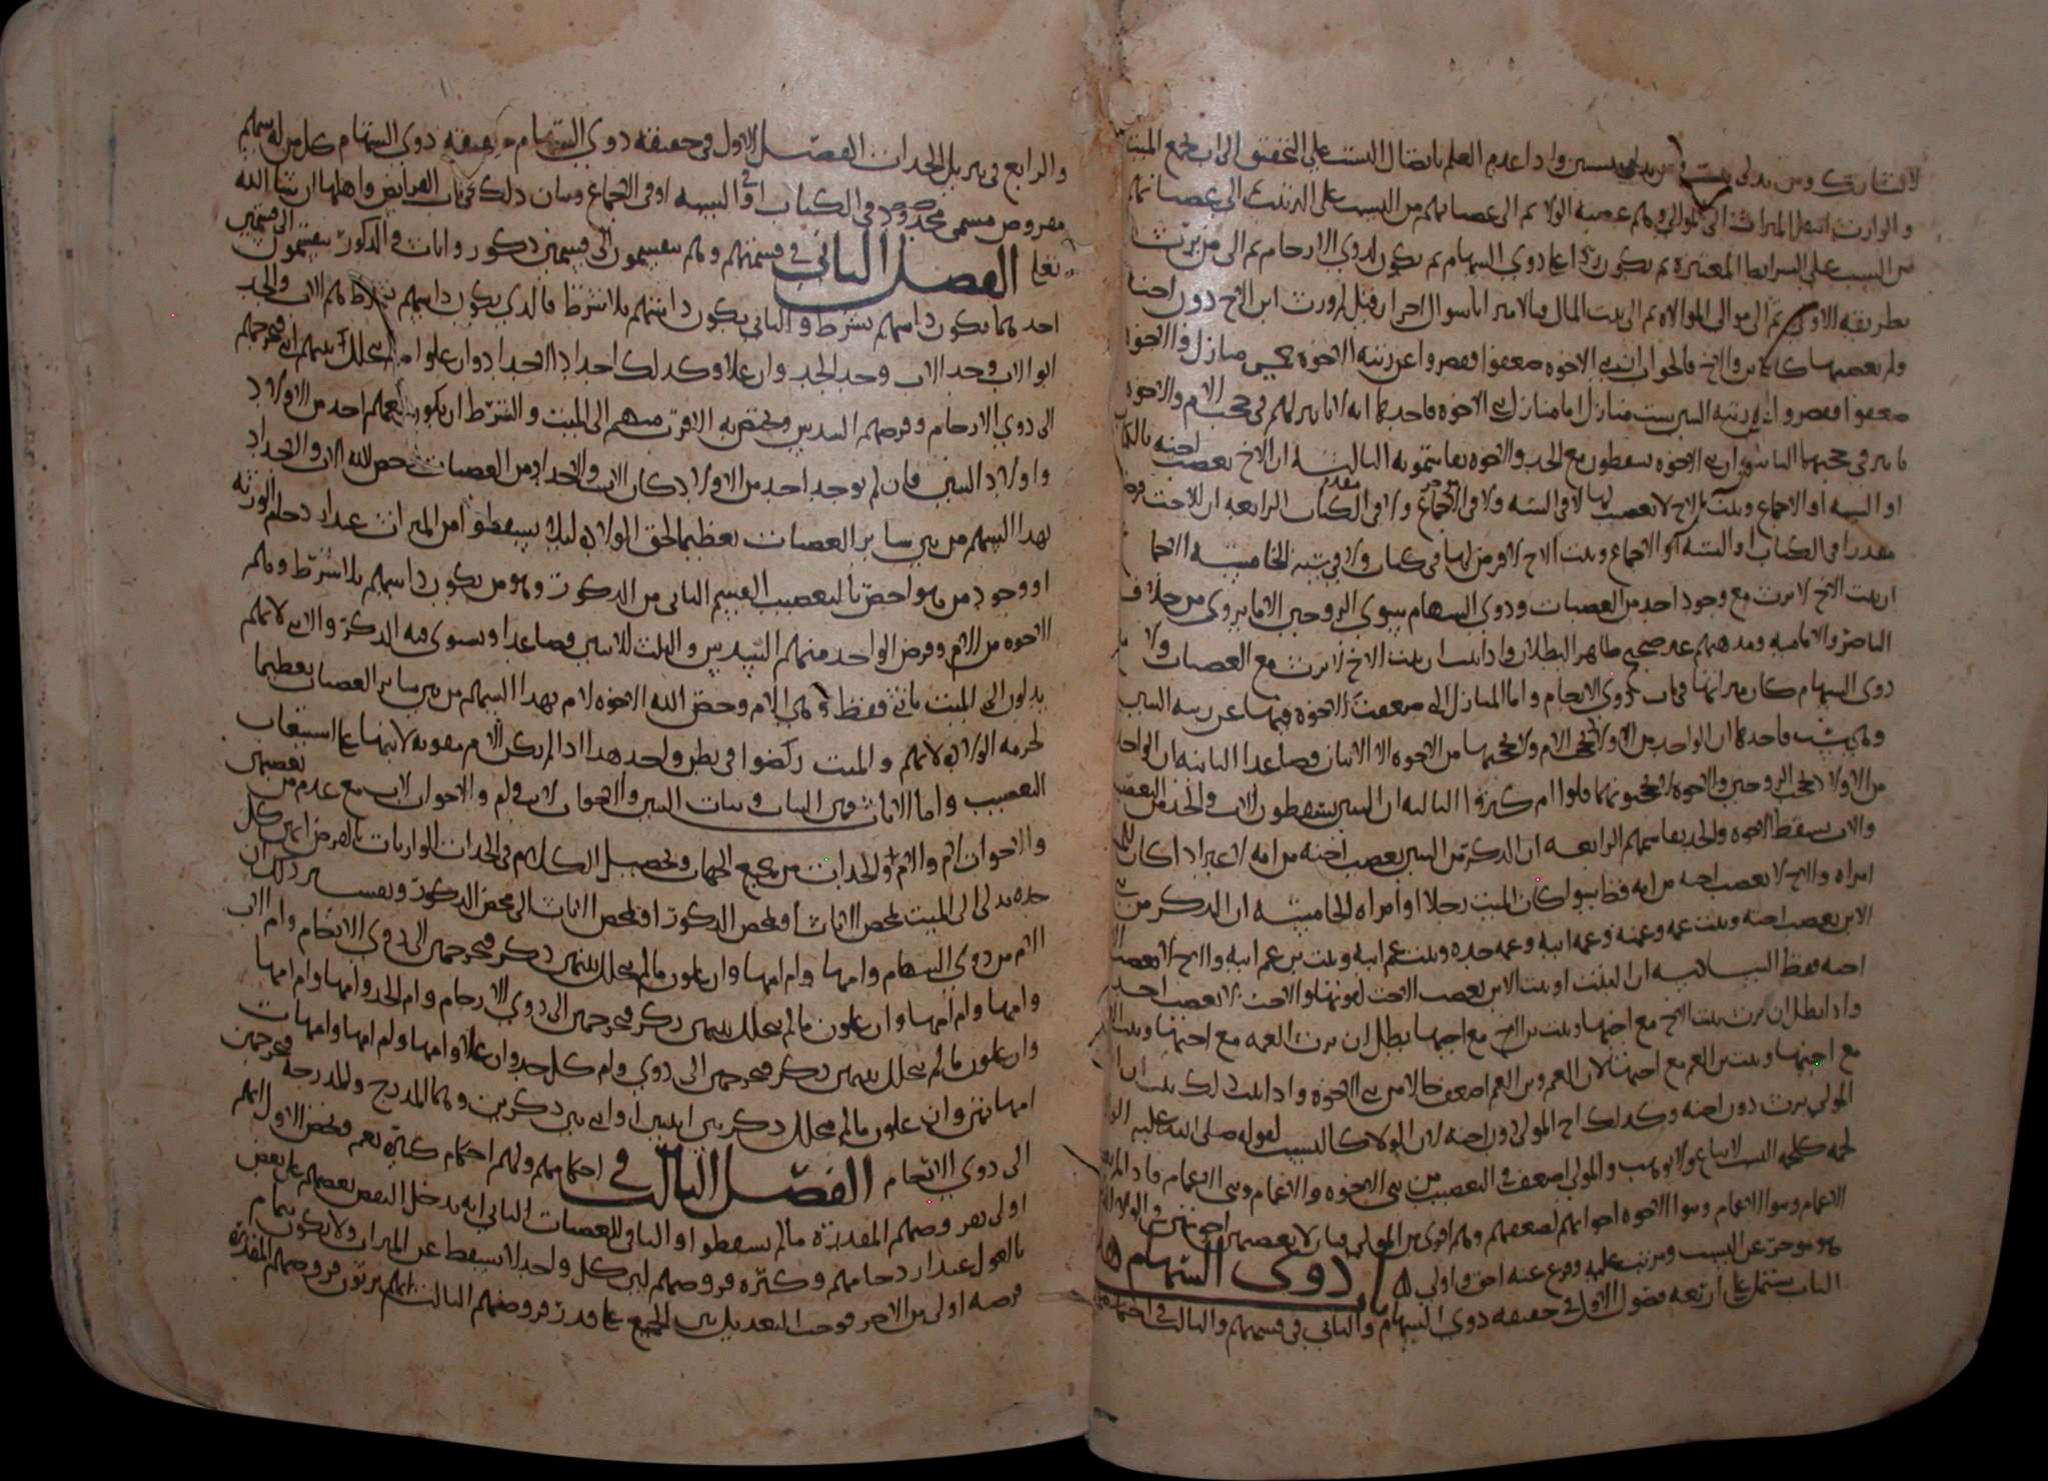 لا تشارك ومن يدلى واذا عدم العلم باتصال النسب على التحقيق الى اب لجمع الميت
والوارث انتقل الميراث الى الموالي وهم عصبه الولا ثم الى عصباتهم من النسب على الترتيب الى عصباتهم
من السبب على الشرايط المعتبره ثم يكون ردا على ذوي السهام ثم يكون لذوي الارحام ثم الى من يرث
بطريقه الاولى ثم الى موالي الموالاه ثم الى بيت المال سوال اخر ان قيل لم ورث ابن الاخ دون اخته
ولم يعصبها كالابن والاخ فالجواب ان بني الاخوه ضعفوا وقصروا عن رتبه الاخوه منازل والاخوه
ضعفوا وقصروا عن رتبه البنين ست منازل اما منازل بني الاخوه فاحدها انه لا تاثير لهم في حجب الام والاخوه
تاثير في حجبها الثانيه ان بني الاخوه يسقطون مع الجد والاخوه يقاسمونه الثالثه ان الاخ يعصب اخته بالكتاب
او السنه او الاجماع وبنت الاخ لا تعصيب لها لا في السنه ولا في الاجماع ولا في الكتاب الرابعه ان للاخت فرضا
مقدرا في الكتاب او السنه او الاجماع وبنت الاخ لا فرض لها في كتاب ولا في سنه الخامسه الاجماع
ان بنت الاخ لا ترث مع وجود احد من العصبات وذوي السهام سوى الزوجين الا ما يروى من خلاف
الناصر والاماميه ومذهبهم غير صحيح ظاهر البطلان واذا ثبت ان بنت الاخ لا ترث مع العصبات ولا
ذوي السهام كان ميراثها في باب ذوي الارحام واما المنازل التي ضعفت الاخوه فيها عن رتبه البنين
وهي ست فاحدها ان الواحد من الاولاد يحجب الام ولا يحجبها من الاخوه الا الاثنان فصاعدا الثانيه ان الواحد
من الاولاد يحجب الزوجين والاخوه لا يحجبونهما قلوا ام كثروا الثالثه ان البنين يسقطون الاب والجد من التعصيب
والاب يسقط الاخوه والجد يقاسمهم الرابعه ان الذكر من البنين يعصب اخته من امه لا غير اذا كان الميت
امراه والاخ لا يعصب اخته من امه فقط سوا كان الميت رجلا او امراه الخامسه ان الذكر من بني
الابن يعصب اخته وبنت عمه وعمته وعمه ابيه وعمه جده وبنت عم ابيه وبنت بن عم ابيه والاخ لا يعصب الا
اخته فقط السادسه ان البنت او بنت الابن يعصب الاخت لقوتها والاخت لا تعصب احد
واذا بطل ان ترث بنت الاخ مع اخيها وبنت بن الاخ مع اخيها بطل ان ترث العمه مع اخيها وبنت العم
مع اخيها وبنت بن العم مع اخيها لان العم وبن العم اضعف حالا من بني الاخوه واذا ثبت ذلك ثبت ان ابن
المولى يرث دون اخته وكذلك اخ المولى دون اخته لان الولا كالنسب لقوله صلى الله عليه الولا
لحمه كلحمه النسب لا يباع ولا يوهب والمولى اضعف في التعصيب من بني الاخوه والاعمام وبني الاعمام فاذا لم يعصب
الاعمام وبنوا الاعمام وبنوا الاخوه اخواتهم لضعفهم وهم اقوى من الموالي فبان لا يعصب اخوتهن في الولا الذي
هو موخر عن النسب ومرتب عليه وفرع عنه احق واولى باب ذوى السهام
الباب يشتمل على اربعه فصول الاول في حقيقه ذوي السهام والثاني في قسمتهم والثالث في احكامهم
والرابع في تنزيل الجدات الفصل الاول في حقيقه ذوي السهام حقيقه ذوي السهام كل من له سهم
مفروض مسمى محدود في الكتاب او في السنه او في الاجماع وبيان ذلك في باب الفرايض واهلها ان شا الله
تعالى الفصل الثاني في قسمتهم وهم ينقسمون الى قسمين ذكور واناث فالذكور ينقسمون الى قسمين
احدهما يكون ذا سهم بشرط والثاني يكون ذا سهم بلا شرط فالذي يكون ذا سهم بشرط هم الاب والجد
ابو الاب وجد الاب وجد الجد وان علا وكذلك اجداد الاجداد وان علوا ما لم يتخلل بينهم انثى فتخرجهم
الى ذوي الارحام وفرضهم السدس ويختص به الاقرب منهم الى الميت والشرط ان يكون معهم احد من الاولاد
واولاد البنين فان لم يوجد احد من الاولاد كان الاب والاجداد من العصبات خص الله الاب والاجداد
بهذا السهم من بين ساير العصبات تعظيما لحق الولاده ليلا يسقطوا من الميراث عند ازدحام الورثه
او وجود من هو اخص بالتعصيب القسم الثاني من الذكور وهو من يكون ذا سهم بلا شرط وهم
الاخوه من الام وفرض الواحد منهم السدس والثلث للاثنين فصاعدا ويستوى فيه الذكر والانثى لانهم
يدلون الى الميت بانثى فقط وهي الام وخص الله الاخوه لام بهذا السهم من بين ساير العصبات تعظيما
لحرمه الولاده لانهم والميت ركضوا في بطن واحد هذا اذا لم يكن الام
التعصيب واما الاناث فهن البنات وبنات البنين والاخوات لاب وام والاخوات لاب مع عدم من يعصبهن
والاخوات لام والام والجدات من جميع الجهات وتحصيل الكلام في الجدات الوارثات بالفرض انهن كل
جده تدلى الى الميت بمحض الاناث او بمحض الذكور او بمحض الاناث الى محض الذكور وتفسير ذلك ان
الام من ذوي السهام وامها وام امها وان علون ما لم يتخلل بينهن ذكر فيخرجهن الى ذوي الارحام وام الاب
وامها وام امها وان علون ما لم يتخلل بينهن ذكر فيخرجهن الى ذوي الارحام وام الجد وامها وام امها
وان علون ما لم يتخلل بينهن ذكر فيخرجهن الى ذوي وام كل جد وان علا وامها وام امها وامهات
امهاتهن وان علون ما لم يتخلل ذكر بين انثيين او انثى بين ذكرين وهما المدرج والمدرجه فتخرجهن
الى ذوي الارحام الفصل الثالث في احكامهم ولهم احكام كثيره تعم وتخص الاول انهم
اولى بفروضهم المقدره ما لم يسقطوا والباقي للعصبات الثاني انه يدخل النقص بعضهم على بعض
بالعول عند ازدحامهم وكثره فروضهم ليس كل واحد لا يسقط عن الميراث ولا يكون بتمام
فرضه اولى من الاخر فوجب التعديل بين الجميع على قدر فروضهم الثالث انهم يرثون فروضهم المقدره